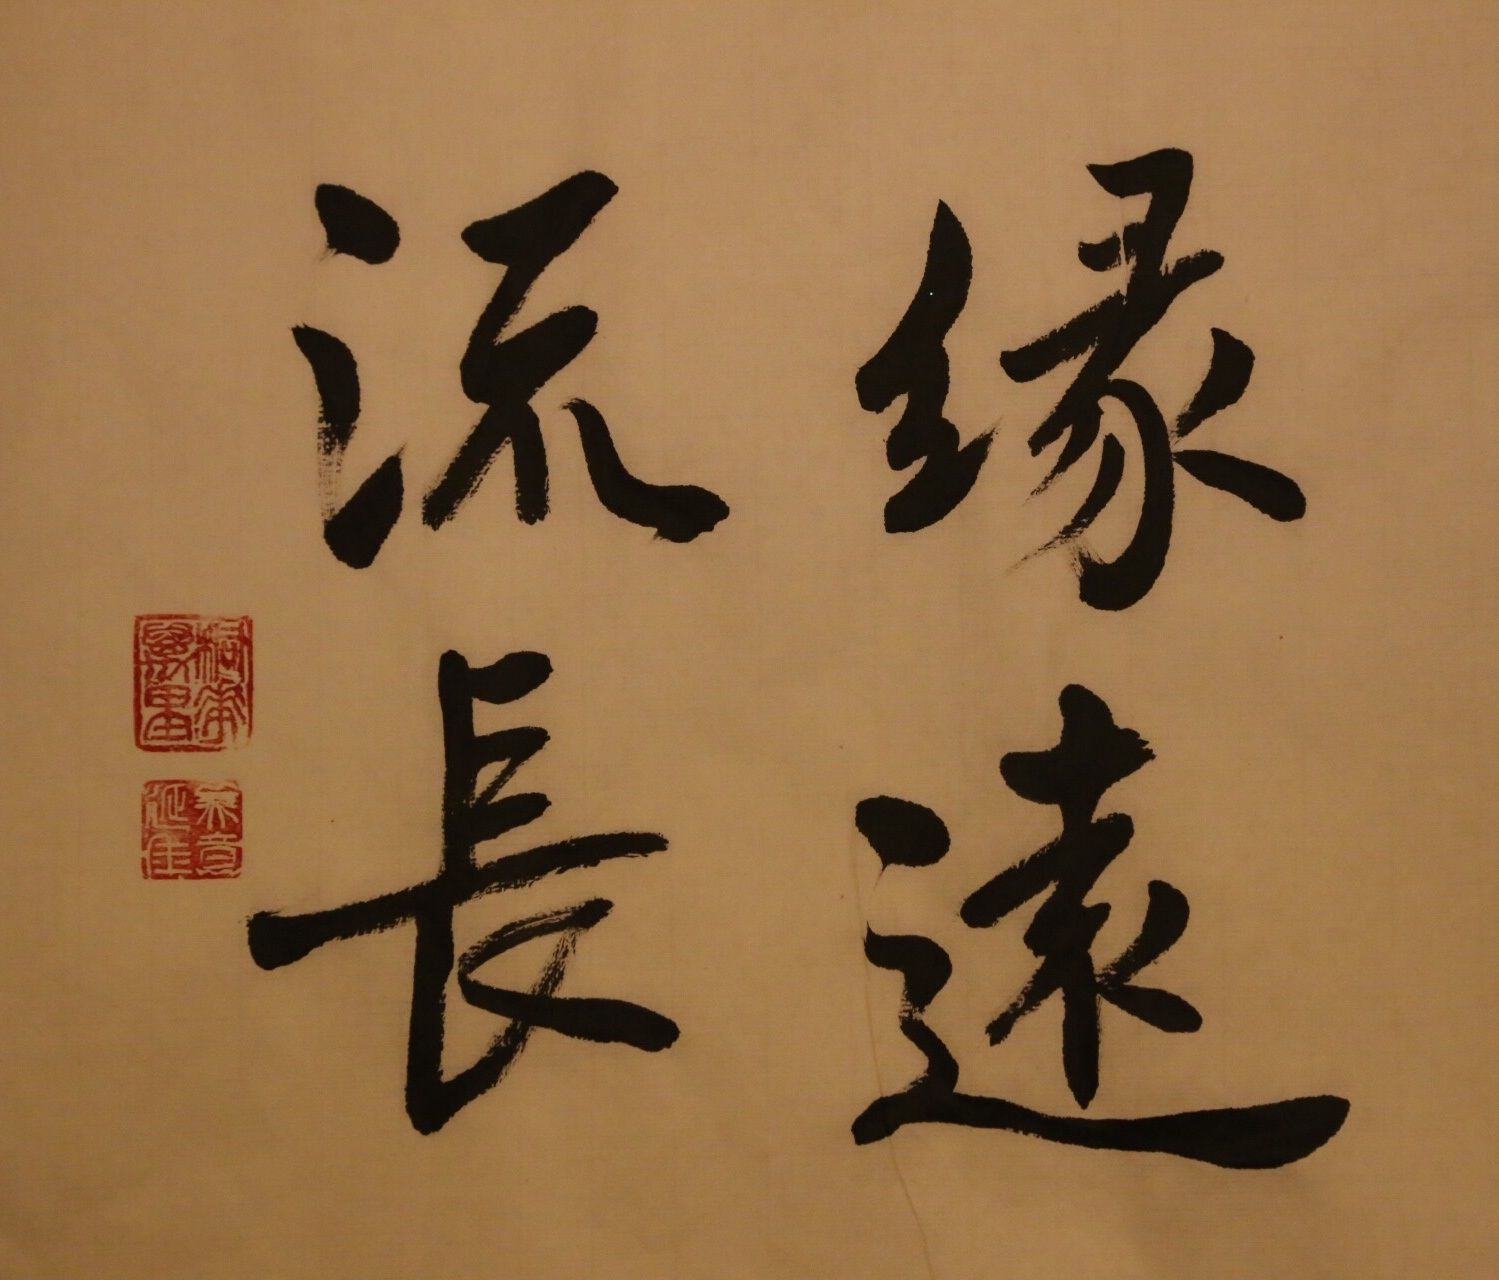 緣遠
流長